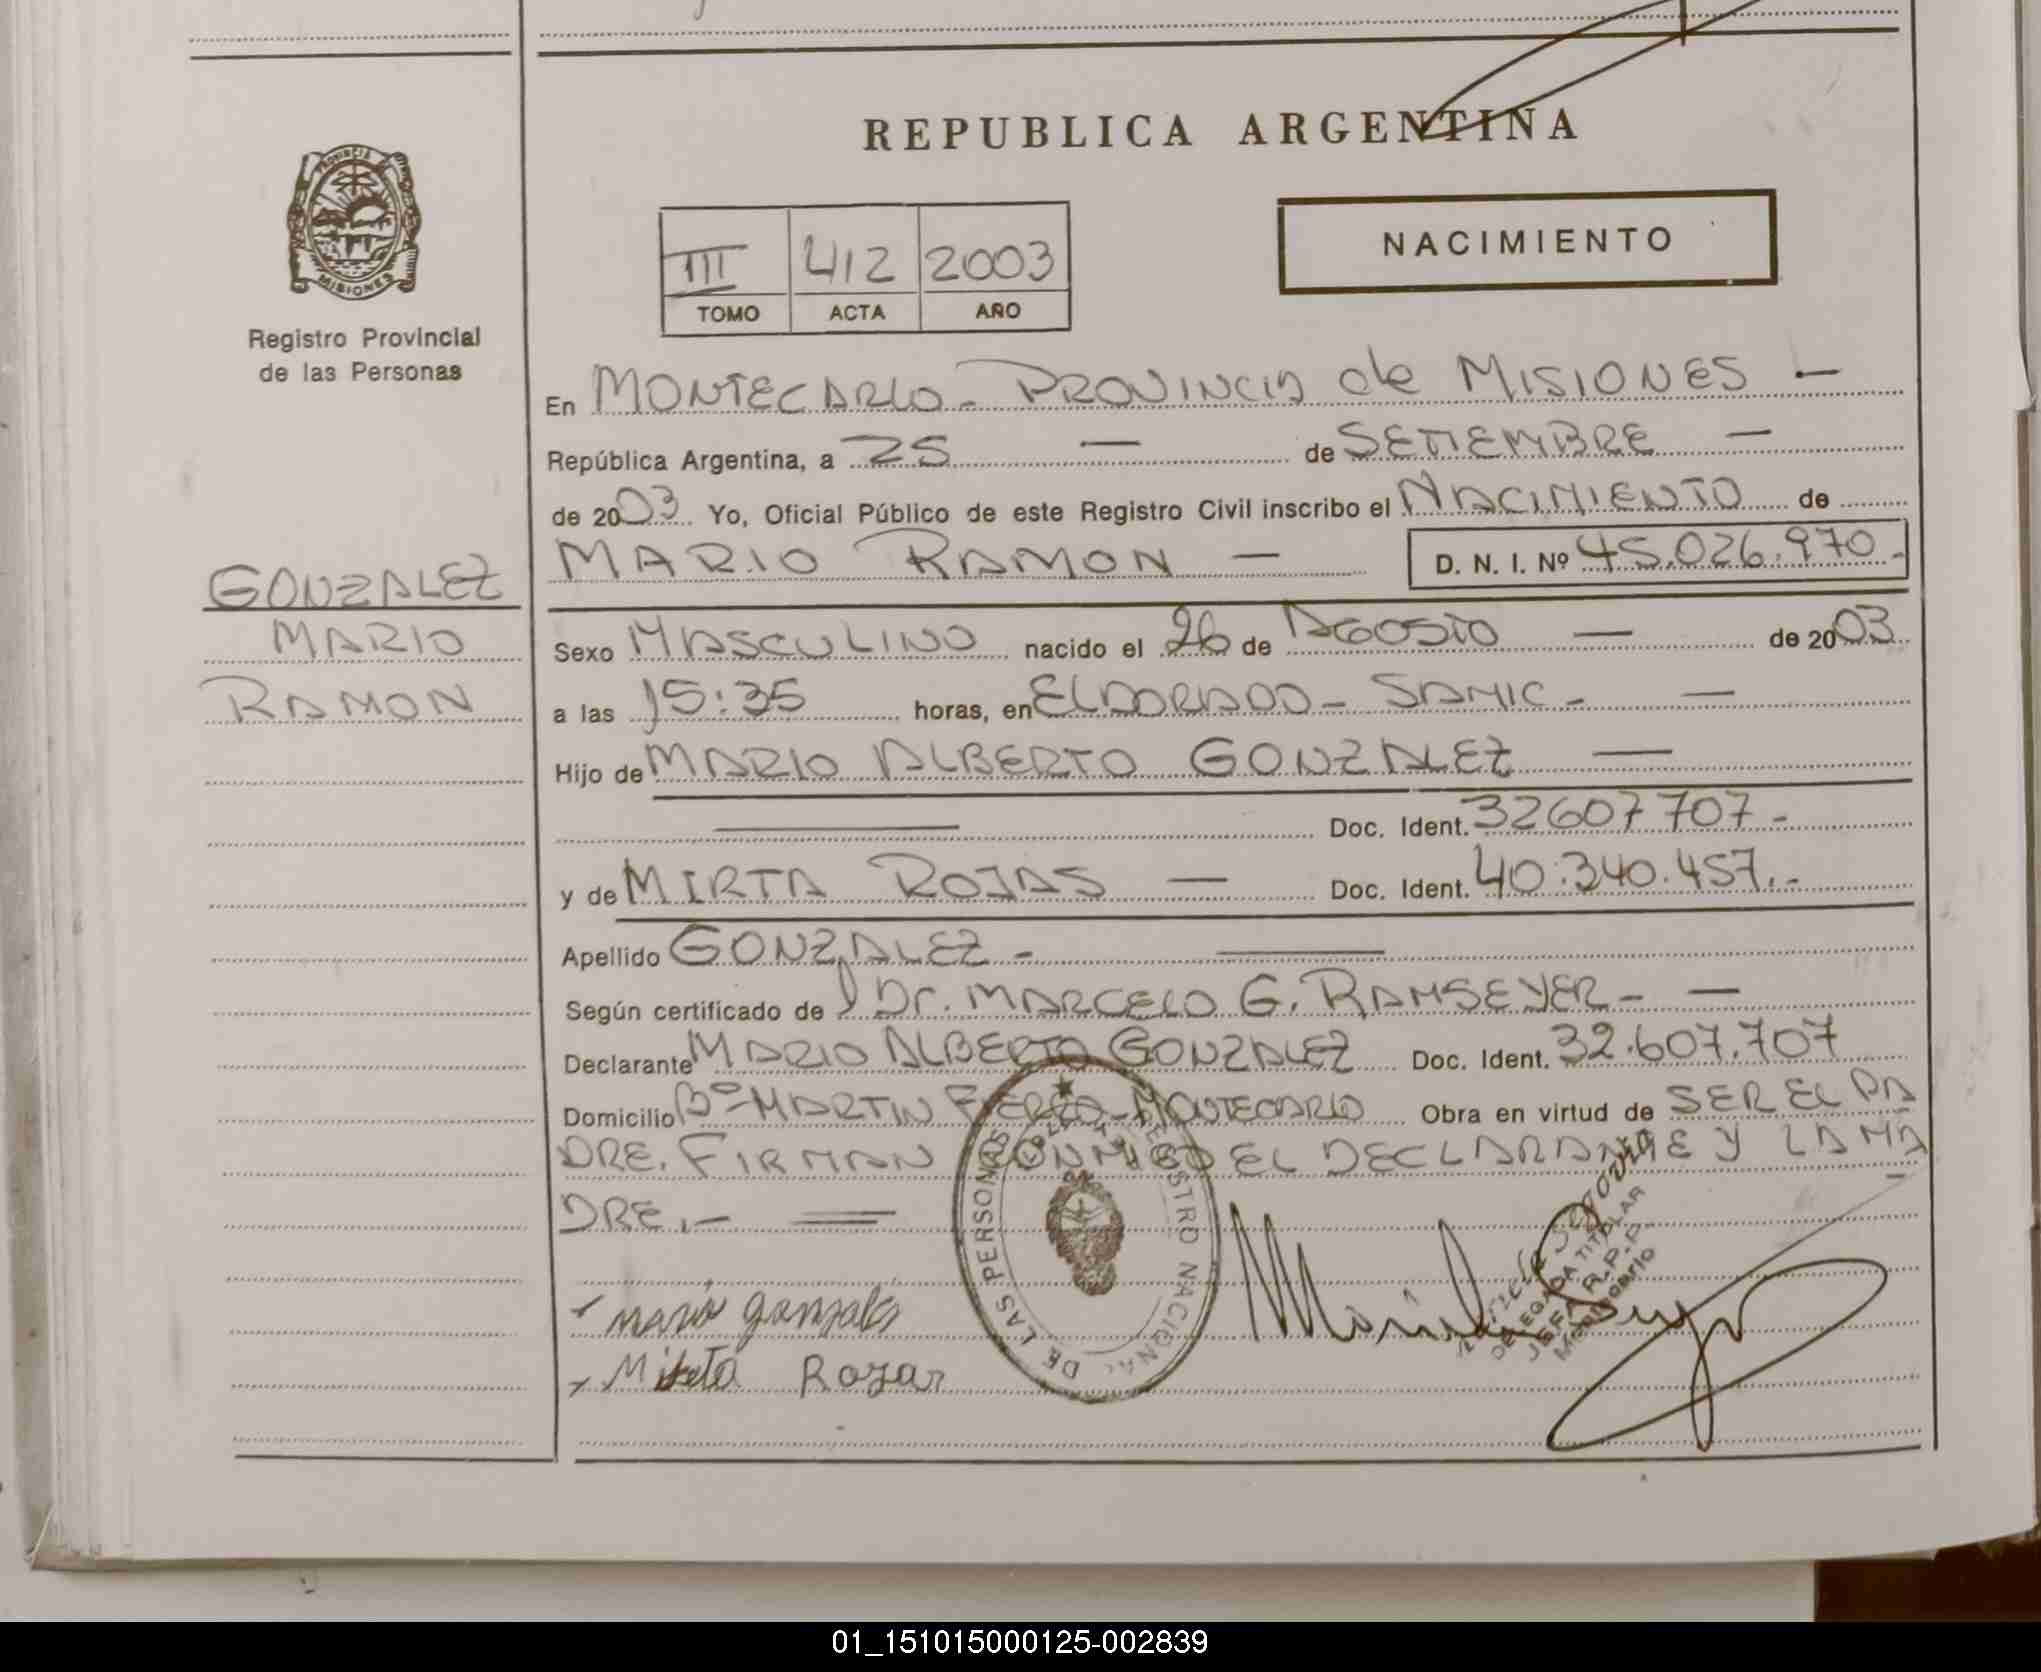 REPUBLICA ARGENTINA
PROVINCIA
MISIONES
Registro Provincial
de las Personas
III 412 2003
TOMO ACTA AÑO
NACIMIENTO
En MONTECARLO - PROVINCIA de MISIONES -
República Argentina, a 25 - de SETIEMBRE -
de 2003 Yo, Oficial Público de este Registro Civil inscribo el NACIMIENTO de
MARIO RAMON - D. N. I. Nº 45.026.970.-
GONZALEZ
MARIO
RAMON
Sexo MASCULINO nacido el 26 de AGOSTO - de 2003
a las 15:35 horas, en ELDORADO - SAMIC - -
Hijo de MARIO ALBERTO GONZALEZ -
Doc. Ident. 32607707 -
y de MIRTA ROJAS - Doc. Ident. 40.340.457.-
Apellido GONZALEZ -
Según certificado de Dr. MARCELO G. RAMSEYER - -
Declarante MARIO ALBERTO GONZALEZ Doc. Ident. 32.607.707
Domicilio Bº MARTIN FIERRO - MONTECARLO Obra en virtud de SER EL PA
DRE. FIRMAN CONMIGO EL DECLARANTE Y LA MA
DRE.-
REGISTRO NACIONAL DE LAS PERSONAS
DELEGADA TITULAR
JEFA R.P.P.
Montecarlo
mario gonzalez
Mirta Rozar
01_151015000125-002839